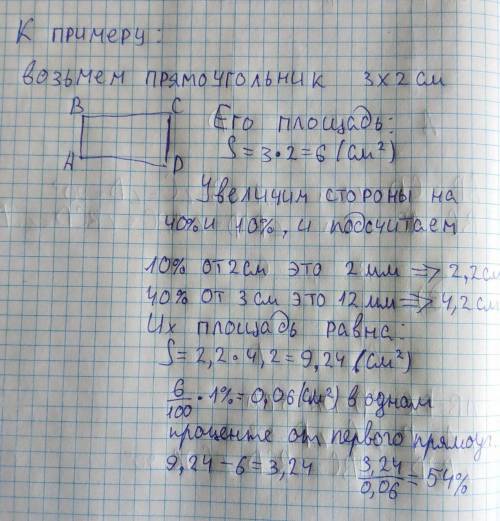 К примеру:
возьмем прямоугольник 3х2 см
B C
A D
Его площадь:
S = 3•2 = 6 (см²)
Увеличим стороны на
40% и 10%, и подсчитаем
10% от 2 см это 2 мм => 2,2 см
40% от 3 см это 12 мм => 4,2 см
Их площадь равна:
S = 2,2•4,2 = 9,24 (см²)
6/100 • 1% = 0,06 (см²) в одном
проценте от первого прямоуг.
9,24 – 6 = 3,24 3,24/0,06 = 54%